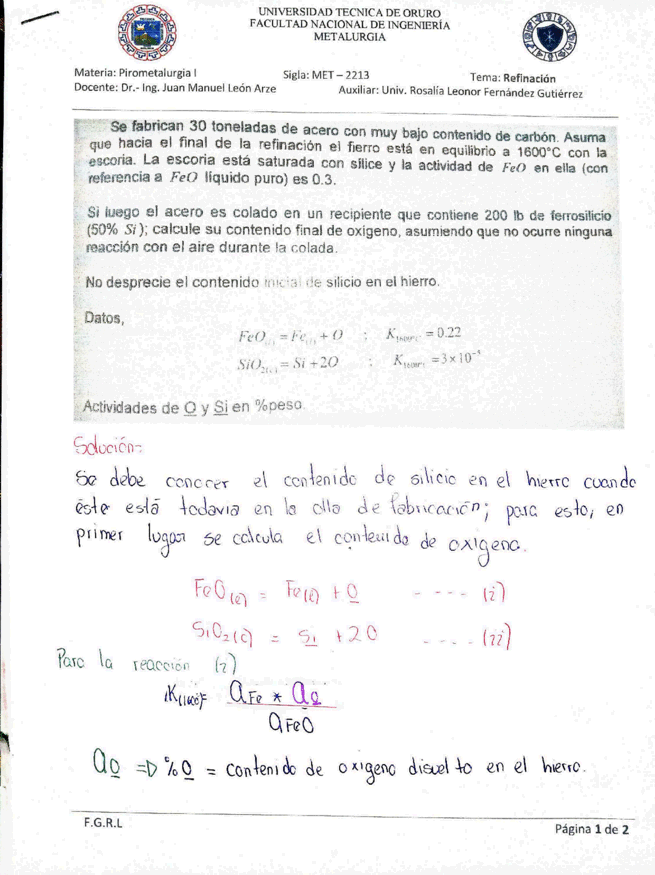 UNIVERSIDAD TECNICA DE ORURO
FACULTAD NACIONAL DE INGENIERÍA
METALURGIA
Materia: Pirometalurgia I Sigla: MET – 2213 Tema: Refinación
Docente: Dr.- Ing. Juan Manuel León Arze Auxiliar: Univ. Rosalía Leonor Fernández Gutiérrez
Se fabrican 30 toneladas de acero con muy bajo contenido de carbón. Asuma
que hacia el final de la refinación el fierro está en equilibrio a 1600°C con la
escoria. La escoria está saturada con sílice y la actividad de FeO en ella (con
referencia a FeO líquido puro) es 0.3.
Si luego el acero es colado en un recipiente que contiene 200 lb de ferrosilicio
(50% Si); calcule su contenido final de oxigeno, asumiendo que no ocurre ninguna
reacción con el aire durante la colada.
No desprecie el contenido inicial de silicio en el hierro.
Datos,
FeO(l) = Fe(l) + O ; K1600°C = 0.22
SiO2(c) = Si + 2O ; K1600°C = 3×10⁻⁵
Actividades de O y Si en %peso.
Solución:-
Se debe conocer el contenido de silicio en el hierro cuando
éste está todavia en la olla de fabricación; para esto, en
primer lugar se calcula el contenido de oxigeno.
FeO(l) = Fe(l) + O ---- (i)
SiO2(c) = Si + 2O ---- (ii)
Para la reacción (i)
K(1600)= aFe * aO
aFeO
aO => %O = contenido de oxigeno disuelto en el hierro.
F.G.R.L
Página 1 de 2